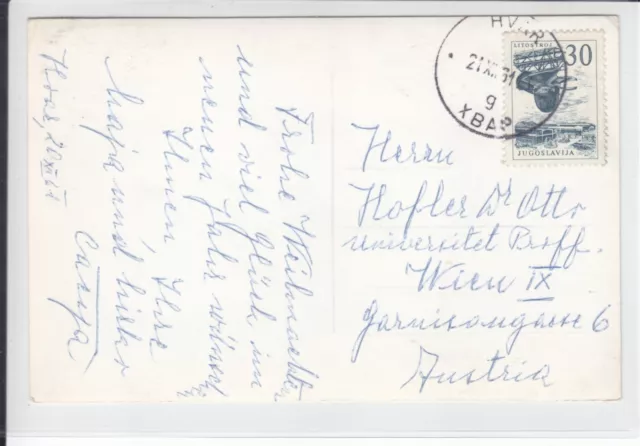 Frohe Weihnachten
und viel Glück im
neuen Jahr wünscht
Ihnen, Ihre
Maja und
Hvar, 20 XII 61
HVAR
21 XII 61
9
ХВАР
LITOSTROJ
30
JUGOSLAVIJA
Herrn
Hofler Dr Otto
universitet Proff.
Wien IX
Garnisongasse 6
Austria